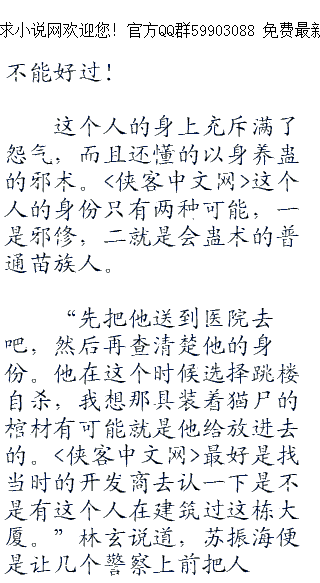 求小说网欢迎您！官方QQ群59903088 免费最新
不能好过！
这个人的身上充斥满了
怨气，而且还懂的以身养蛊
的邪术。<侠客中文网>这个
人的身份只有两种可能，一
是邪修，二就是会蛊术的普
通苗族人。
“先把他送到医院去
吧，然后再查清楚他的身
份。他在这个时候选择跳楼
自杀，我想那具装着猫尸的
棺材有可能就是他给放进去
的。<侠客中文网>最好是找
当时的开发商去认一下是不
是有这个人在建筑过这栋大
厦。”林玄说道，苏振海便
是让几个警察上前把人